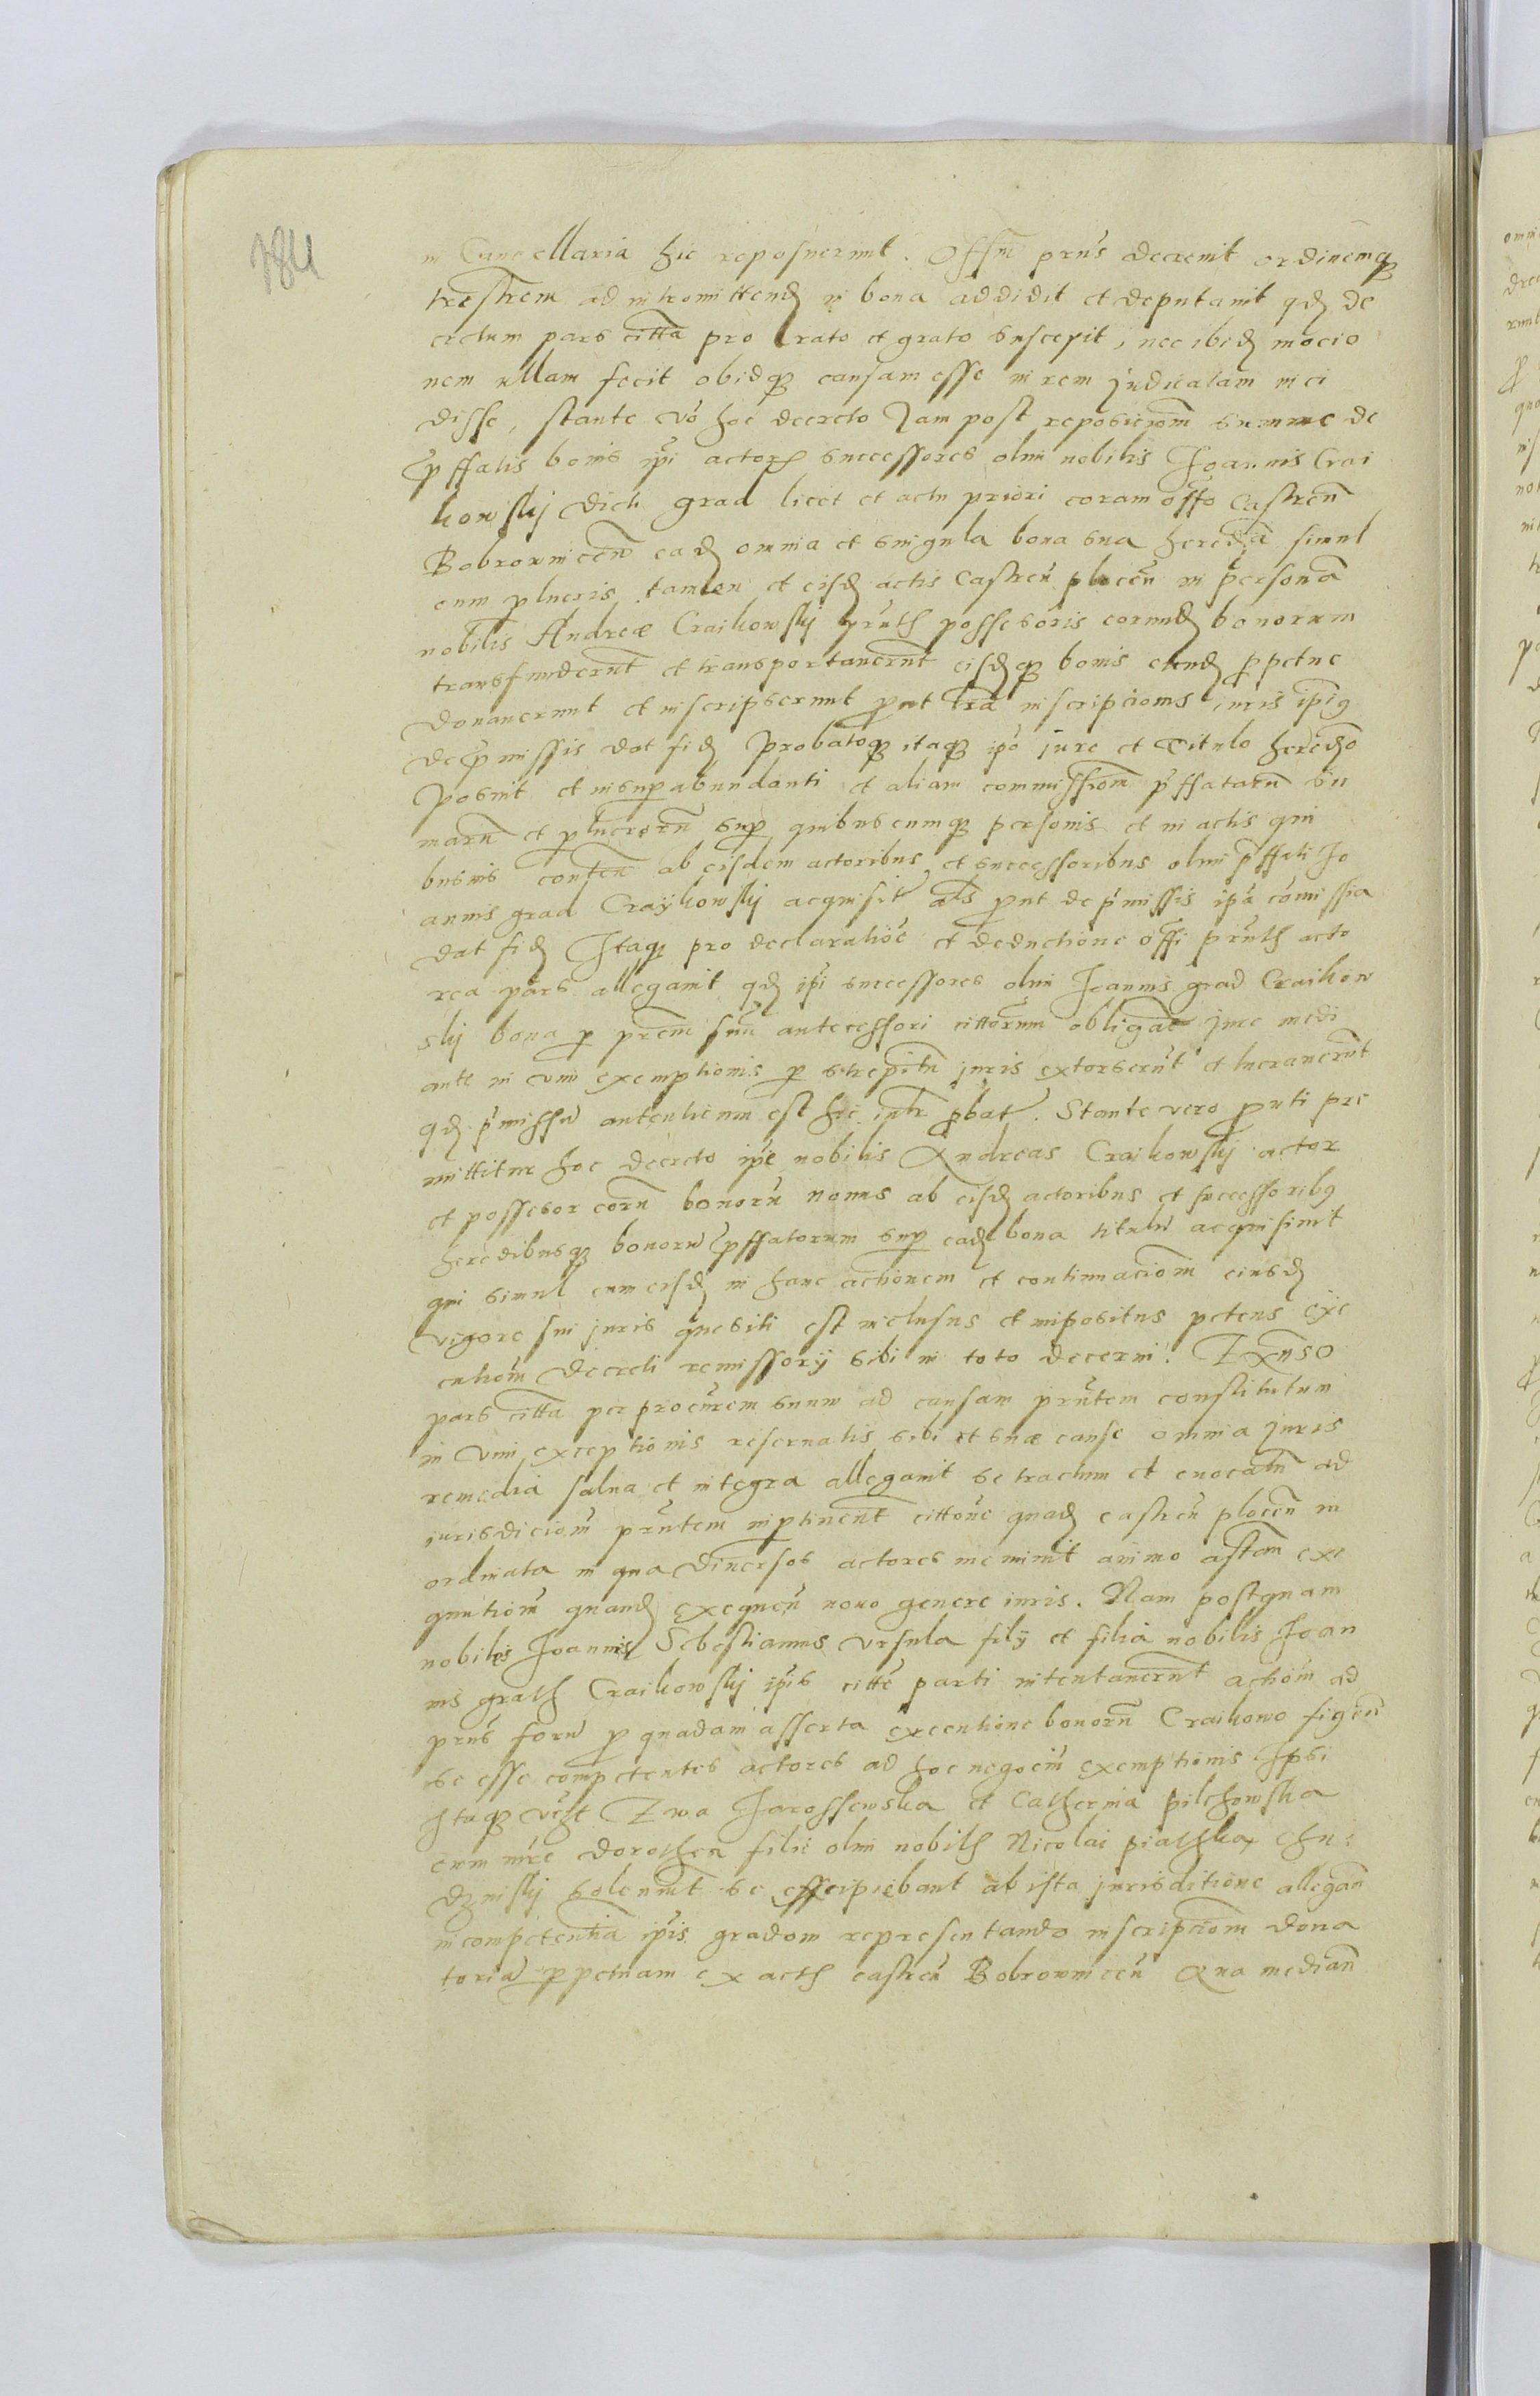 184
in Cancellaria hic reposuerunt. Offm prns decrevit ordinemq
trestrem ad intromittend in bona addidit et deputavit qd de
cretum pars citta pro rato et grato suscepit, nec ibid mocio
nem ullam fecit obidq causam esse in rem judicatam inci
disse, stante vo hoc decreto Jam post reposiciom summe de
pffatis bonis ipi actores successores olim nobilis Joannis Crai
kowskj dicti grad licet et actu priori coram offo Castren
Bobrownicen ead omnia et singula bona sua heredia simul
cum plucris tamen et eisd actis castren plocen in persona
nobilis Andreæ Craikowskj prnth possesoris eorund bonorum
transfunderunt et transportaverunt eisdq bonis eund ppetue
donaverunt et inscripserunt prout tra inscripcionis iuris ipius
de pmissis dat fid Probatoq itaq ipo jure et Titulo heredo
posuit et insuperabundanti et aliam commissiom pffatarum su
marum et plucrorum sup quibuscumq personis et in actis qui
busvis conten ab eisdem actoribus et successoribus olim pffati Jo
annis grad Craijkowskj acquisit als prout de pmissis ipa comissia
dat fid Itaq pro declaratioe et deductione offi prnth acto
rea pars allegavit qd ipi successores olim Joannis grad Craikow
skj bona p prem suu antecessori cittorum obligae jure medi
ante in vim exemptionis p strepitu juris extorserunt et lucraverunt
qd pmissu autenticum est hic intr pbat. Stante vero prouti pre
mittitur hoc decreto ipe nobilis Andreas Craikowskj actor
et possesor eoru bonoru novus ab eisd actoribus et successoribus
heredibusq bonoru pffatorum sup ead bona titulu acquisivit
qui simul cum eisd in hanc actionem et continuaciom eiusd
vigore sui juris quesiti est inclusus et impositus petens exe
cutiom decreti remissorij sibi in toto decerni. Exnso
pars citta per procurem suum ad causam prntem constitutum
in vim exceptionis reservatis sibi et suæ cause omnia juris
remedia salva et integra allegavit se tractum et evocatu ad
jurisdiciom prntem imptinent cittone quad castren plocen in
ordinata in qua diversos actores in animo astan exe
quutiom quand exequen novo genere iuris. Nam postquam
nobiles Joannes Sebestianus Ursula filij et filia nobilis Joan
nis grath Craikowskj ipis citte parti intentaverunt actiom ad
prns foru p quadam asserta executione bonoru Craikowo figen
se esse competentes actores ad hoc negociu exemptionis Ipsi
Itaq Ewa Jarossewska et Catherina pilchowska
cum mre dorothea filie olim nobilh Nicolai piathka Chu
dzinskj solenniter se excipiebant ab ista jurisditione allegan
incompetentia ipis gradom representando inscriptiom dona
toria ppetuam ex acth castren Bobrownicen Qua median